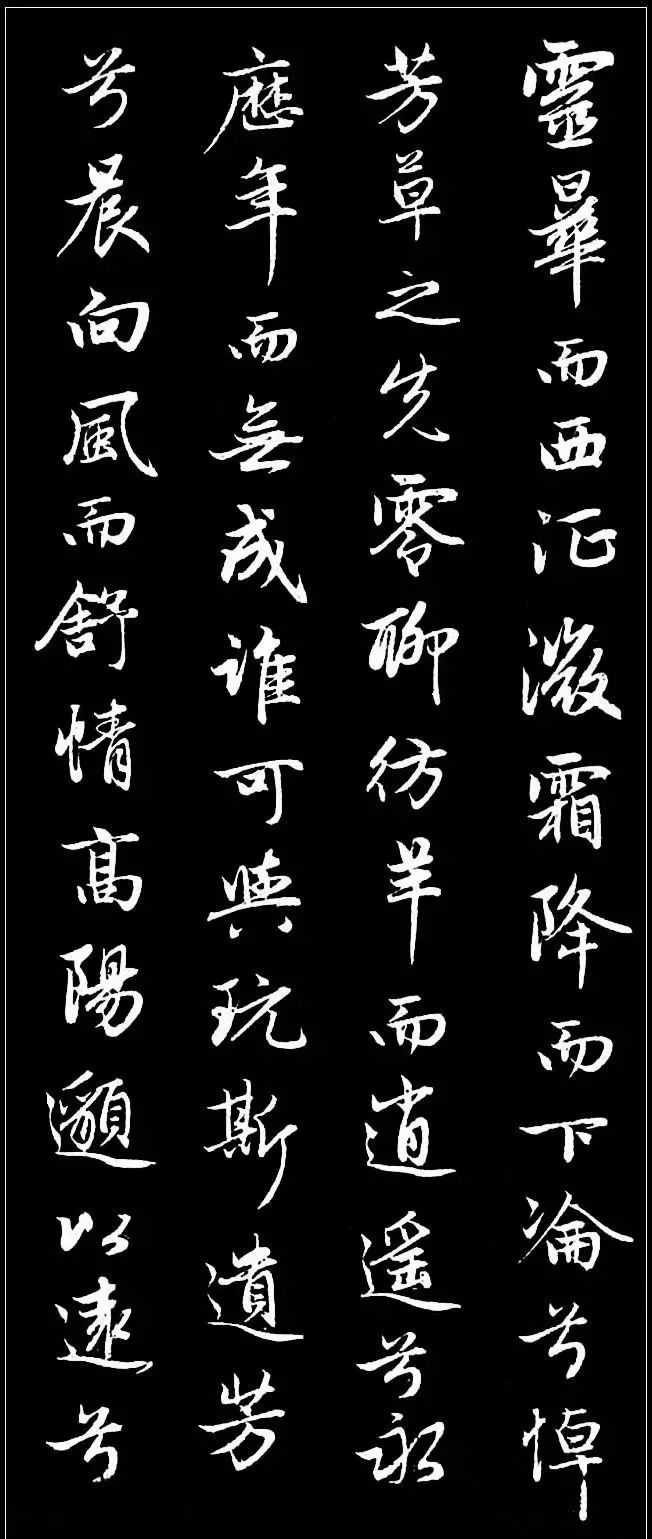 靈曅而西征微霜降而下淪兮悼
芳草之先零聊彷羊而逍遥兮永
歷年而無成誰可與玩斯遺芳
兮晨向風而舒情高陽邈以遠兮